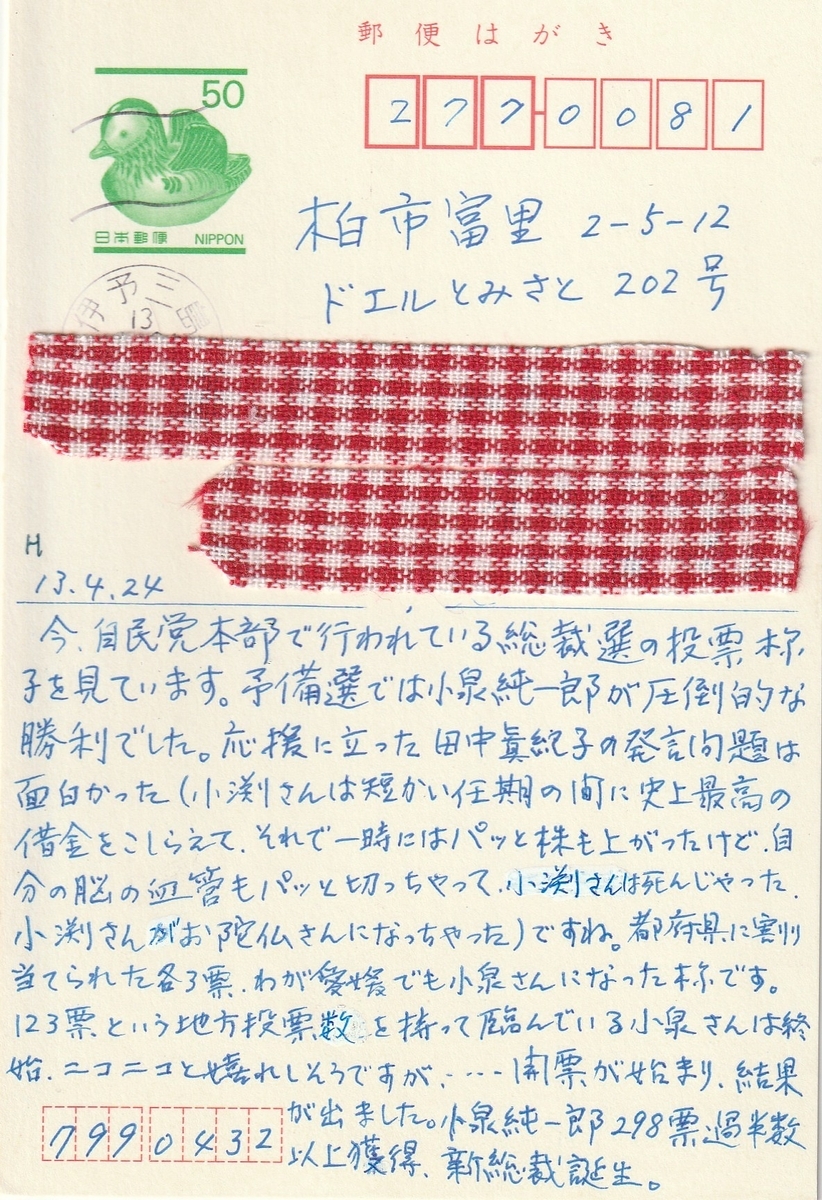 郵便はがき
50
日本郵便 NIPPON
277-0081
柏市富里 2-5-12
ドエルとみさと 202号
伊予三島
13
H
13.4.24
今、自民党本部で行われている総裁選の投票様
子を見ています。予備選では小泉純一郎が圧倒的な
勝利でした。応援に立った田中眞紀子の発言問題は
面白かった(小渕さんは短かい任期の間に史上最高の
借金をこしらえて、それで一時にはパッと株も上がったけど、自
分の脳の血管もパッと切っちゃって、小渕さんは死んじゃった、
小渕さんがお陀仏さんになっちゃった)ですね。都府県に割り
当てられた各3票、わが愛媛でも小泉さんになった様です。
123票という地方投票数を持って臨んでいる小泉さんは終
始、ニコニコと嬉れしそうですが、‥‥開票が始まり、結果
が出ました。小泉純一郎 298票過半数
以上獲得、新総裁誕生。
7990432